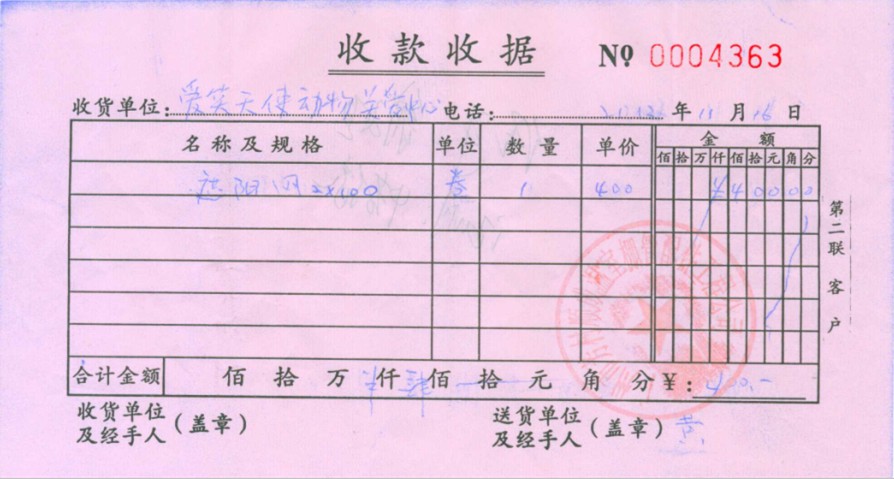 收款收据 № 0004363
收货单位:爱笑天使动物关爱中心 电话: 年 月 16 日
名称及规格 单位 数量 单价 金额
佰 拾 万 仟 佰 拾 元 角 分
遮阳网 2x100 卷 1 400 ¥ 4 0 0 0 0
第二联 客户
合计金额 佰 拾 万 仟 佰 拾 元 角 分 ¥: 400.-
收货单位及经手人(盖章) 送货单位及经手人(盖章) 黄